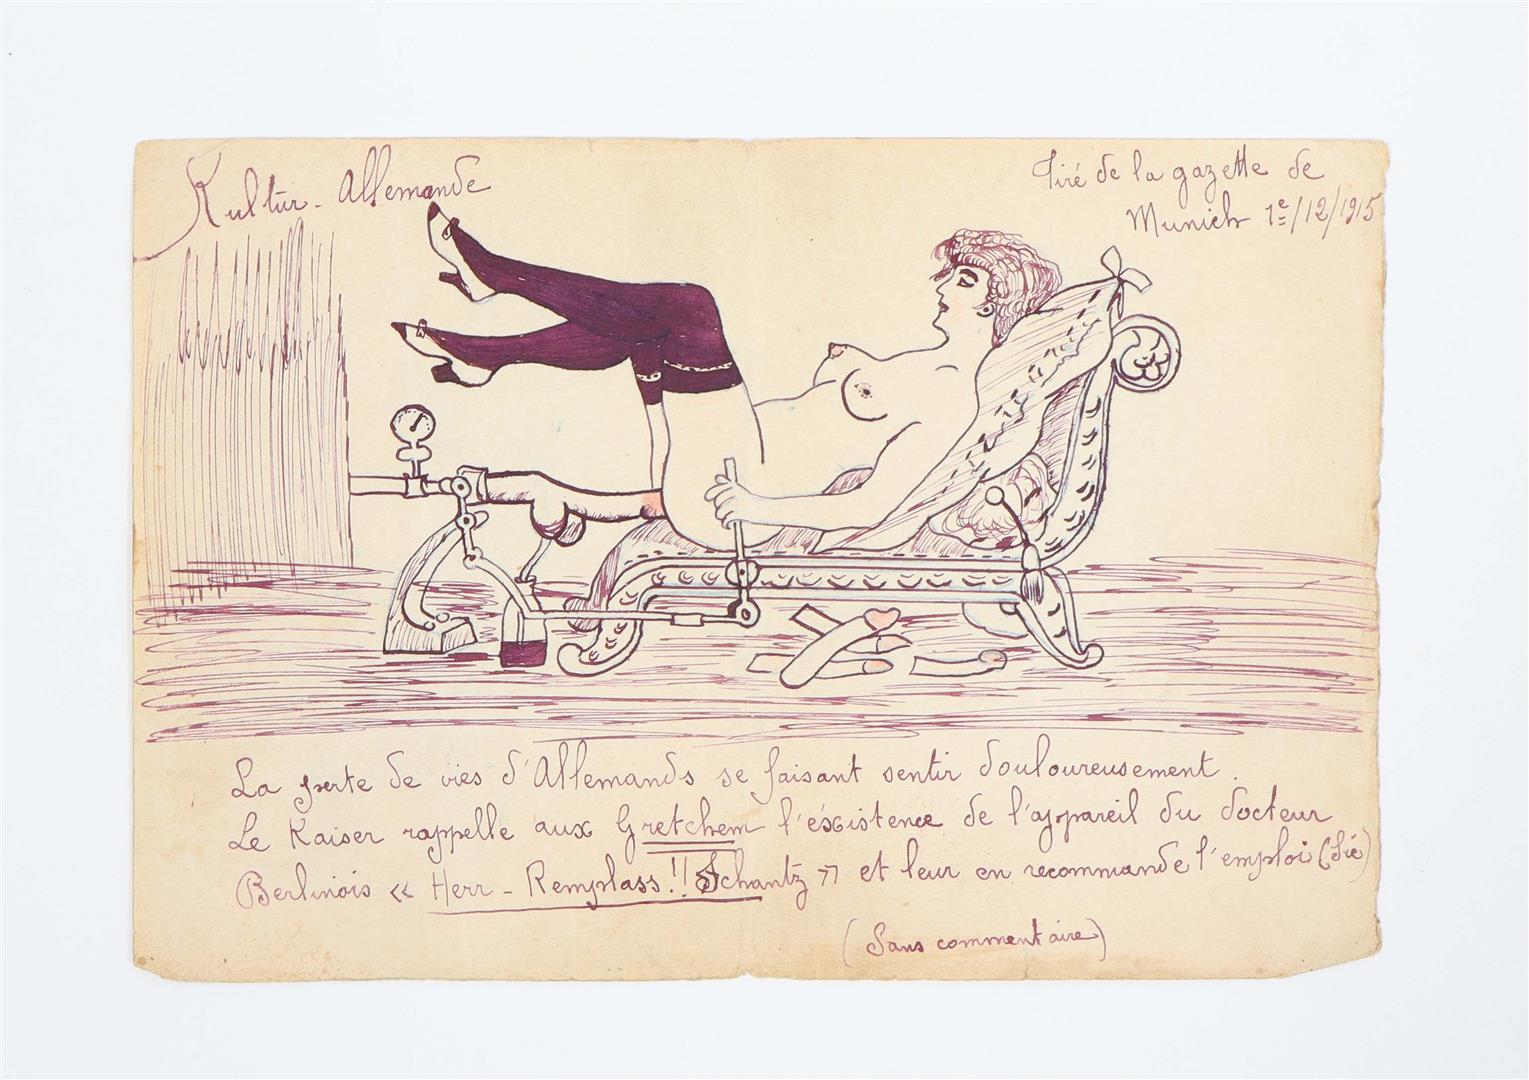 Kultur - Allemande
Tiré de la gazette de
Munich 1e/12/1915
La perte de vies d'Allemands se faisant sentir douloureusement.
Le Kaiser rappelle aux Gretchem l'éxistence de l'appareil du docteur
Berlinois « Herr - Remplass!! Schantz » et leur en recommande l'emploi (Sic)
(Sans commentaire)